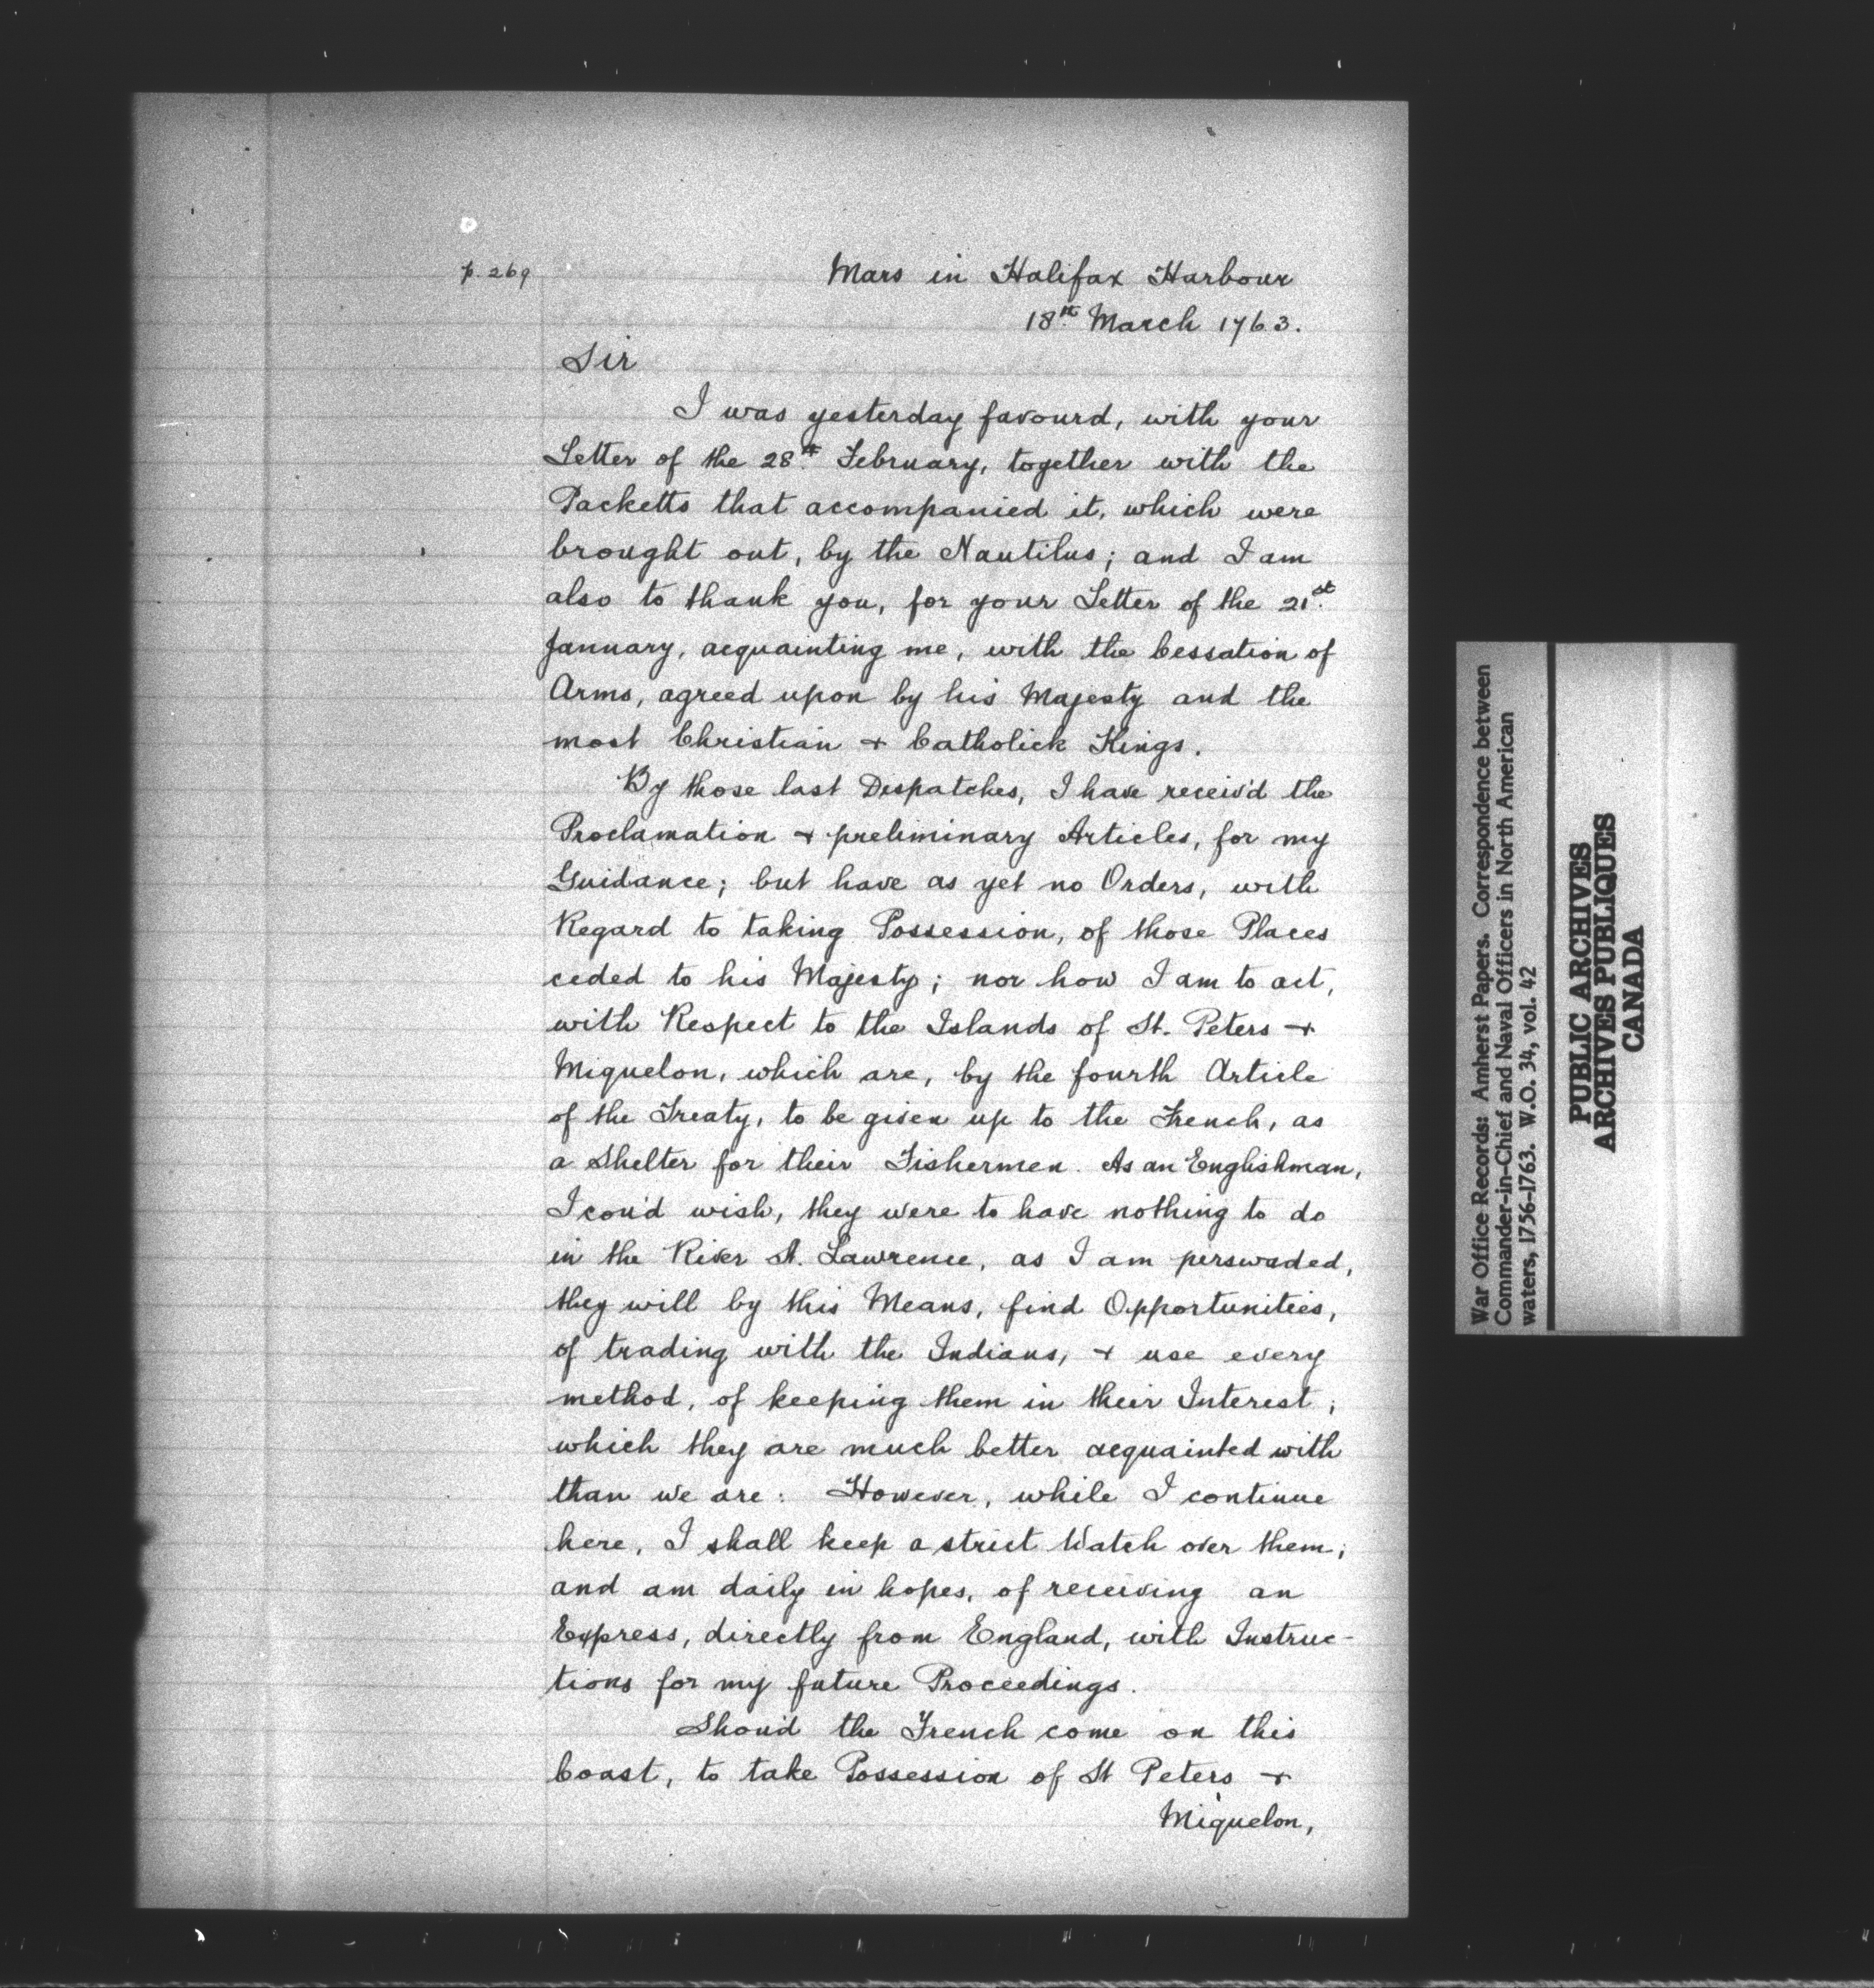 p. 269
Mars in Halifax Harbour
18th March 1763.
Sir
I was yesterday favourd, with your
Letter of the 28th February, together with the
Packetts that accompanied it, which were
brought out, by the Nautilus; and I am
also to thank you, for your Letter of the 21st
January, acquainting me, with the Cessation of
Arms, agreed upon by his Majesty and the
most Christian & Catholick Kings.
By those last Despatches, I have receiv'd the
Proclamation & preliminary Articles, for my
Guidance; but have as yet no Orders, with
Regard to taking Possession, of those Places
ceded to his Majesty; nor how I am to act,
with Respect to the Islands of St. Peters &
Miquelon, which are, by the fourth Article
of the Treaty, to be given up to the French, as
a Shelter for their Fishermen. As an Englishman,
I cou'd wish, they were to have nothing to do
in the River St. Lawrence, as I am perswaded,
they will by this Means, find Opportunities,
of trading with the Indians, & use every
method, of keeping them in their Interest;
which they are much better acquainted with
than we are: However, while I continue
here, I shall keep a strict Watch over them;
and am daily in hopes, of receiving an
Express, directly from England, with Instruc-
tions for my future Proceedings.
Shou'd the French come on this
Coast, to take Possession of St Peters &
Miquelon,
War Office Records: Amherst Papers. Correspondence between
Commander-in-Chief and Naval Officers in North American
waters, 1756-1763. W.O. 34, vol. 42
PUBLIC ARCHIVES
ARCHIVES PUBLIQUES
CANADA